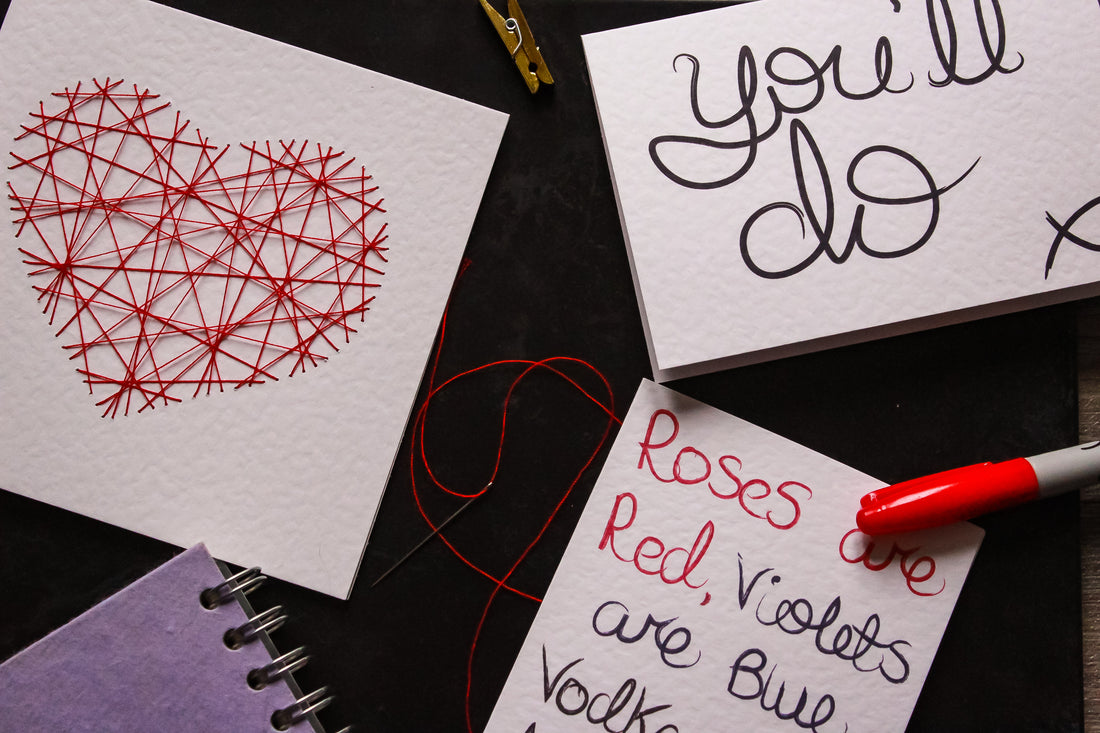 you'll
do
x
Roses are
Red, Violets
are Blue
Vodka